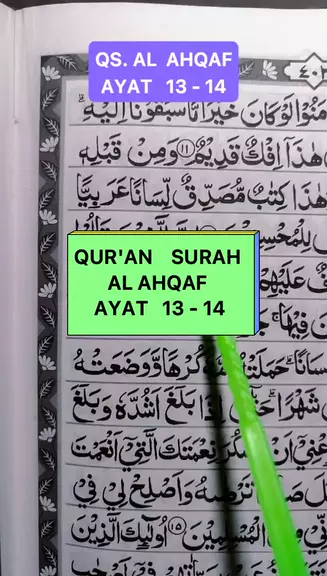 QS. AL AHQAF
AYAT 13 - 14
٤٠٢
مَنُوْا لَوْ كَانَ خَيْرًا مَّا سَبَقُوْنَآ اِلَيْهِ ۗ
هٰذَآ اِفْكٌ قَدِيْمٌ ١١ وَمِنْ قَبْلِهٖ
هٰذَا كِتٰبٌ مُّصَدِّقٌ لِّسَانًا عَرَبِيًّا
لِلْمُحْسِنِيْنَ
QUR'AN SURAH
AL AHQAF
AYAT 13 - 14
فٌ عَلَيْهِمْ
نَ فِيْهَا ۚ
سَانًا ۗ حَمَلَتْهُ كُرْهًا وَّوَضَعَتْهُ
شَهْرًا ۗ حَتّٰىٓ اِذَا بَلَغَ اَشُدَّهٗ وَبَلَغَ
عْنِيْٓ اَنْ اَشْكُرَ نِعْمَتَكَ الَّتِيْٓ اَنْعَمْتَ
صَالِحًا تَرْضٰىهُ وَاَصْلِحْ لِيْ فِيْ
الْمُسْلِمِيْنَ ١٥ اُولٰۤىِٕكَ الَّذِيْنَ